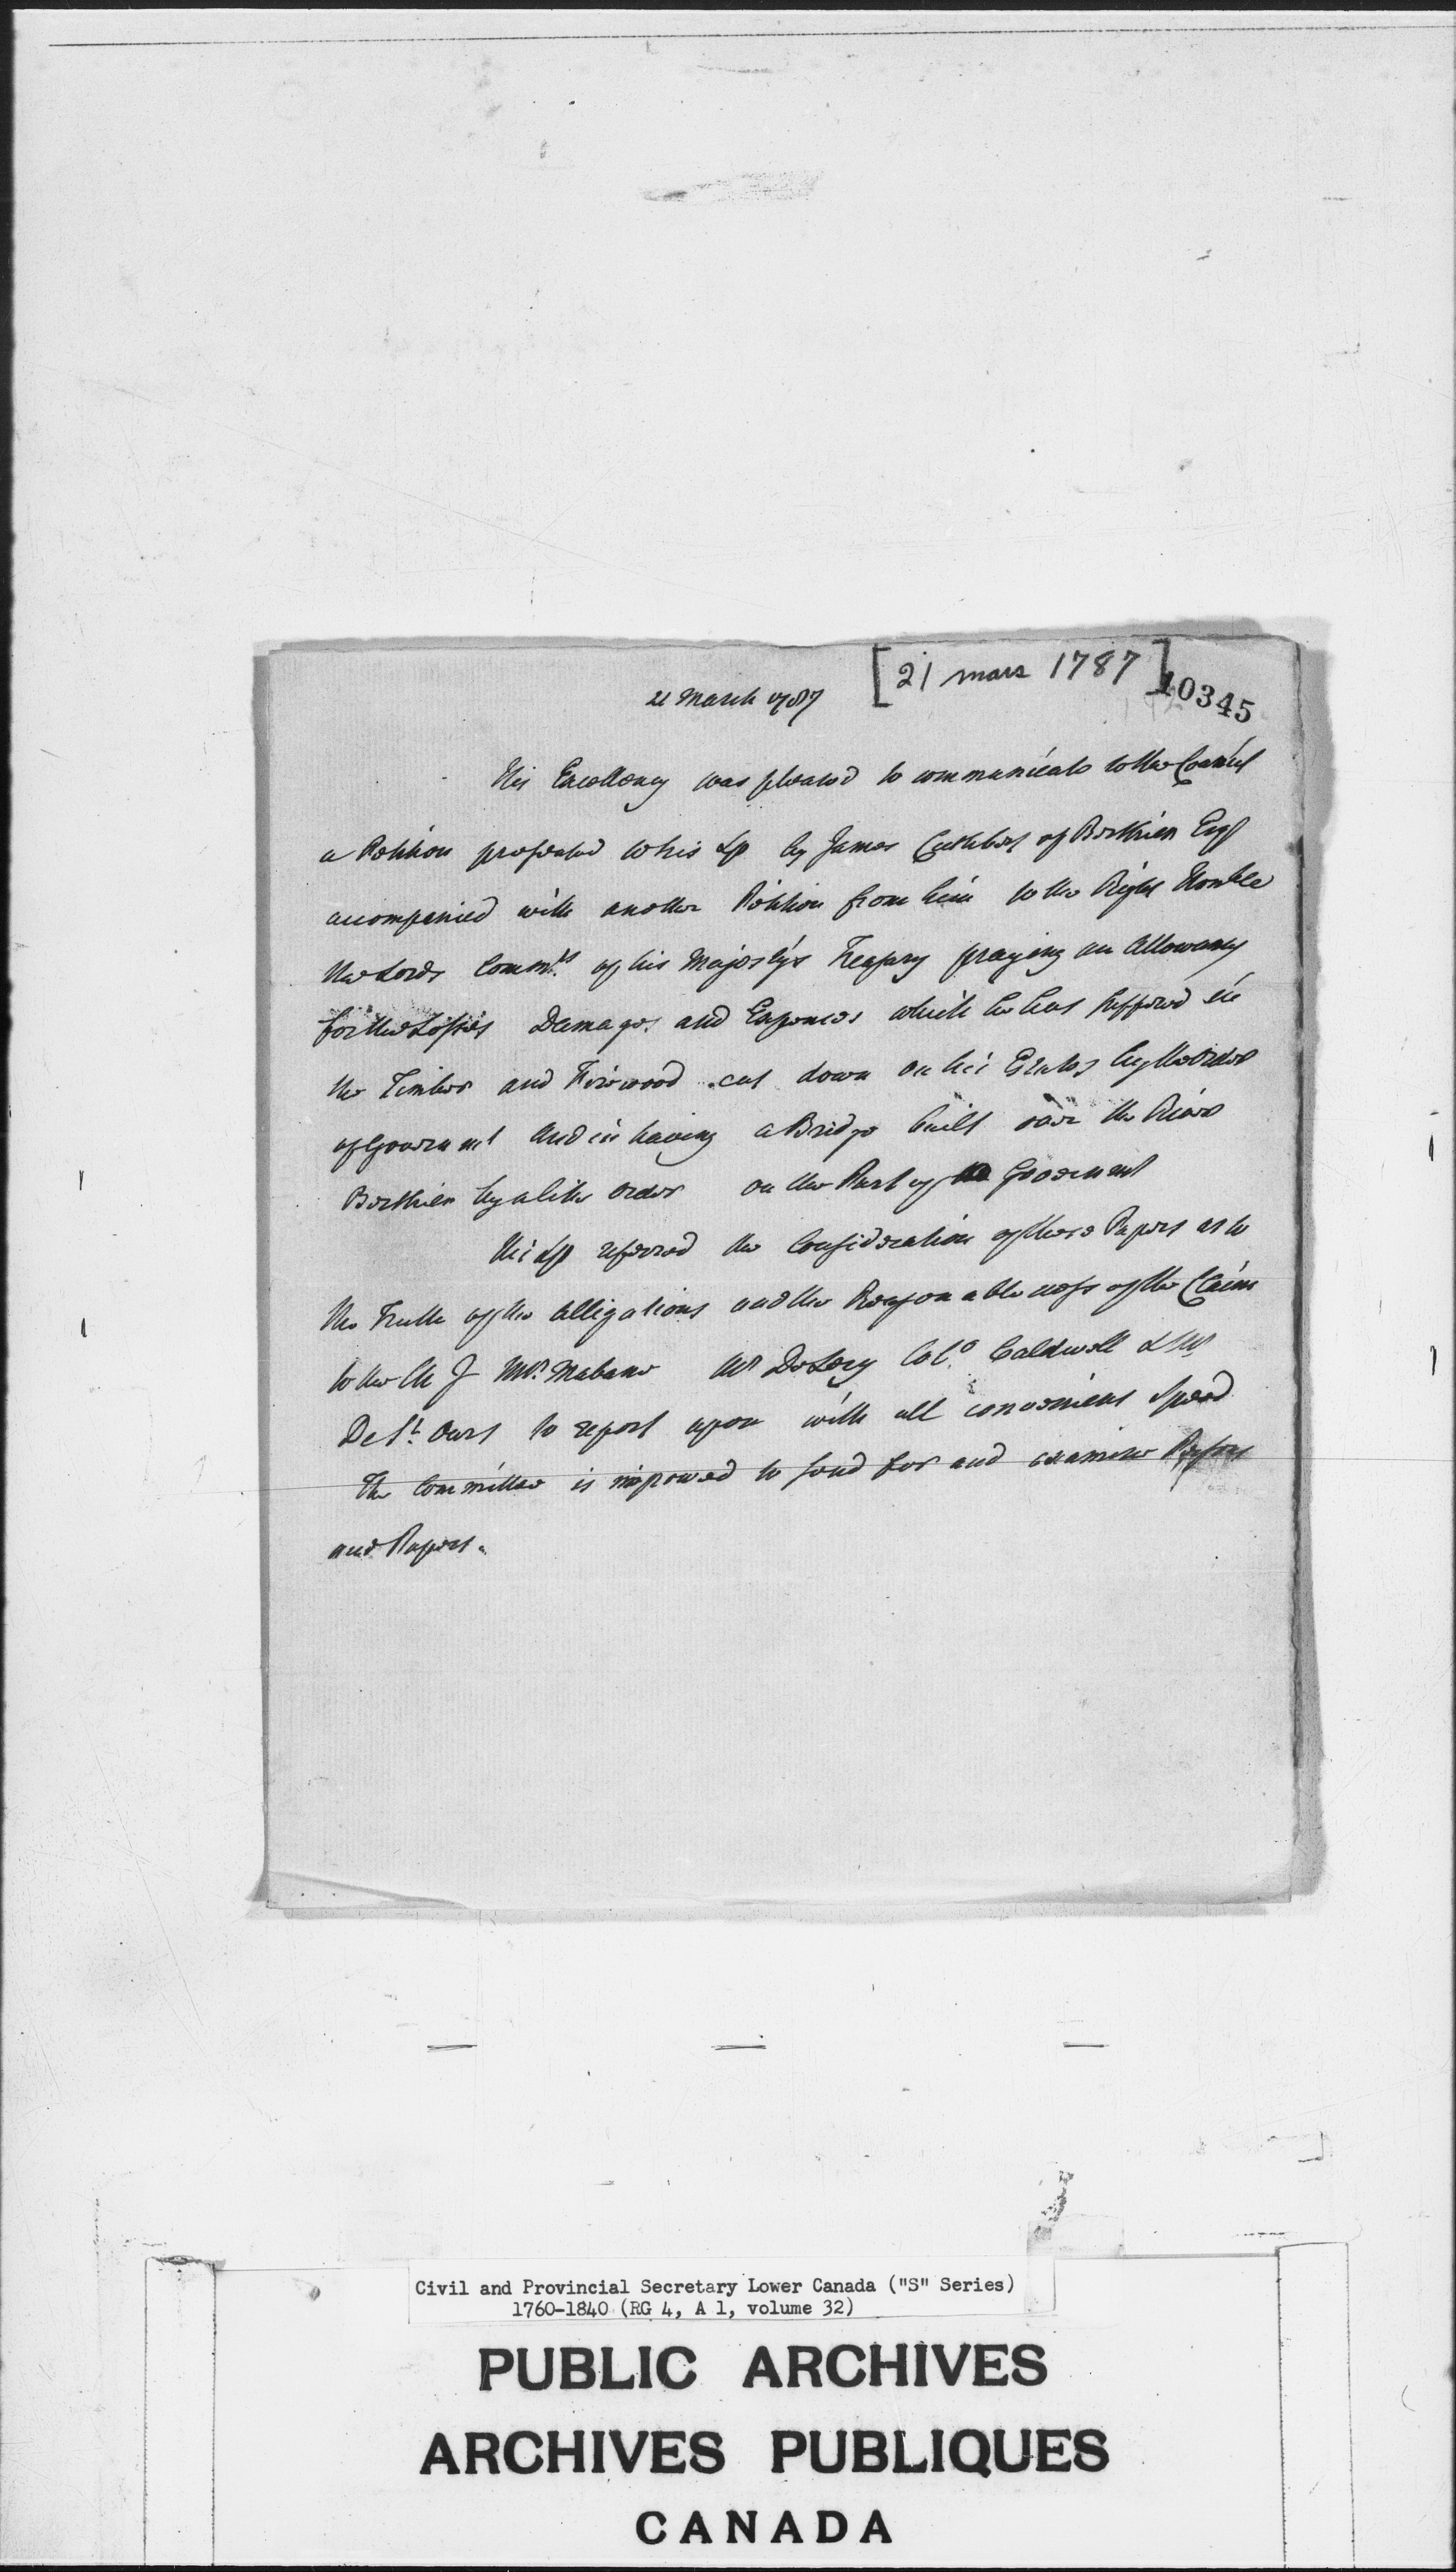 [21 mars 1787]
10345
21 March 1787
His Excellency was pleased to communicate to the Council
a Petition presented to his Lp by James Cuthbert of Berthier Esqr
accompanied with another Petition from him to the Right Honble
the Lords Commrs of his Majesty's Treasury praying an Allowance
for the Losses Damages and Expences which he has suffered in
the Timber and Firewood cut down on his Estates by the Order
of Governmt And in having a Bridge built over the River
Berthier by a like Order on the Part of Goverment
His Lp referred the Consideration of these Papers as to
the Truth of the Alligations and the Reasonableness of the Claim
to the Ch J Mr. Mabane Mr DeLery Colo Caldwell & Mr
De St. Ours to report upon with all convenient Speed
The Committee is impowred to send for and examine Persons
and Papers.
Civil and Provincial Secretary Lower Canada ("S" Series)
1760-1840 (RG 4, A 1, volume 32)
PUBLIC ARCHIVES
ARCHIVES PUBLIQUES
CANADA